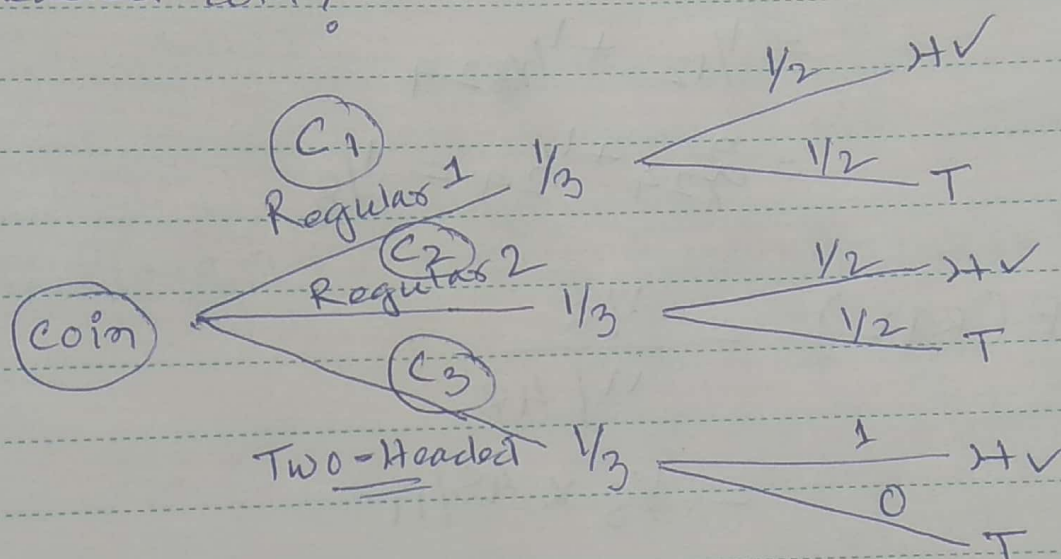 ?
1/2 H ✓
C1
Regular 1 1/3
1/2 T
C2
Regular 2 1/3
1/2 H ✓
coin
1/2 T
C3
Two-Headed 1/3
1 H ✓
0 T